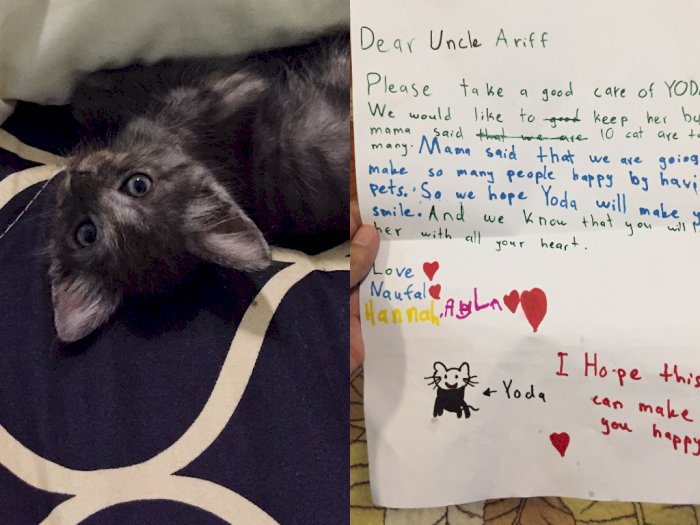 Dear Uncle Ariff
Please take a good care of YOD
We would like to good keep her bu
mama said that we are 10 cat are t
many. Mama said that we are going
make so many people happy by havi
pets. So we hope Yoda will make y
smile. And we know that you will
her with all your heart.
Love
Naufal
Hannah
I Hope this
← Yoda
can make
you happy